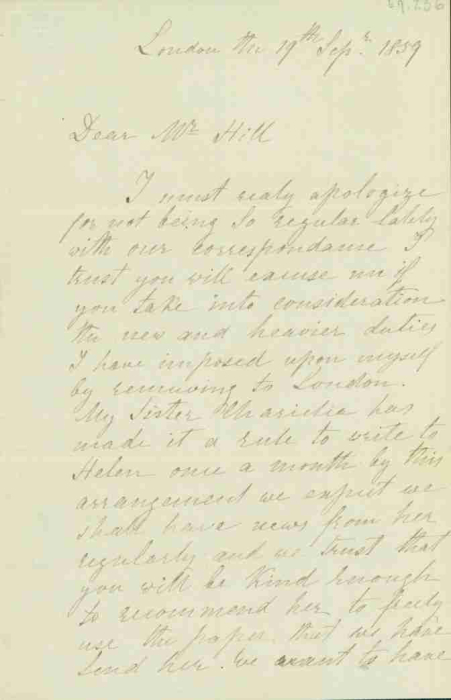 69.256
London the 19th Sepr. 1859
Dear Mr Hill
I must realy apologize
for not being so regular lately
with our correspondance I
trust you will excuse me if
you take into consideration
the new and heavier duties
I have imposed upon myself
by removing to London.
My Sister Chariclia has
made it a rule to write to
Helen once a month by this
arrangement we expect we
shall have news from her
regularly and we trust that
you will be Kind enough
to recommend her to freely
use the paper that we have
send her. We want to have